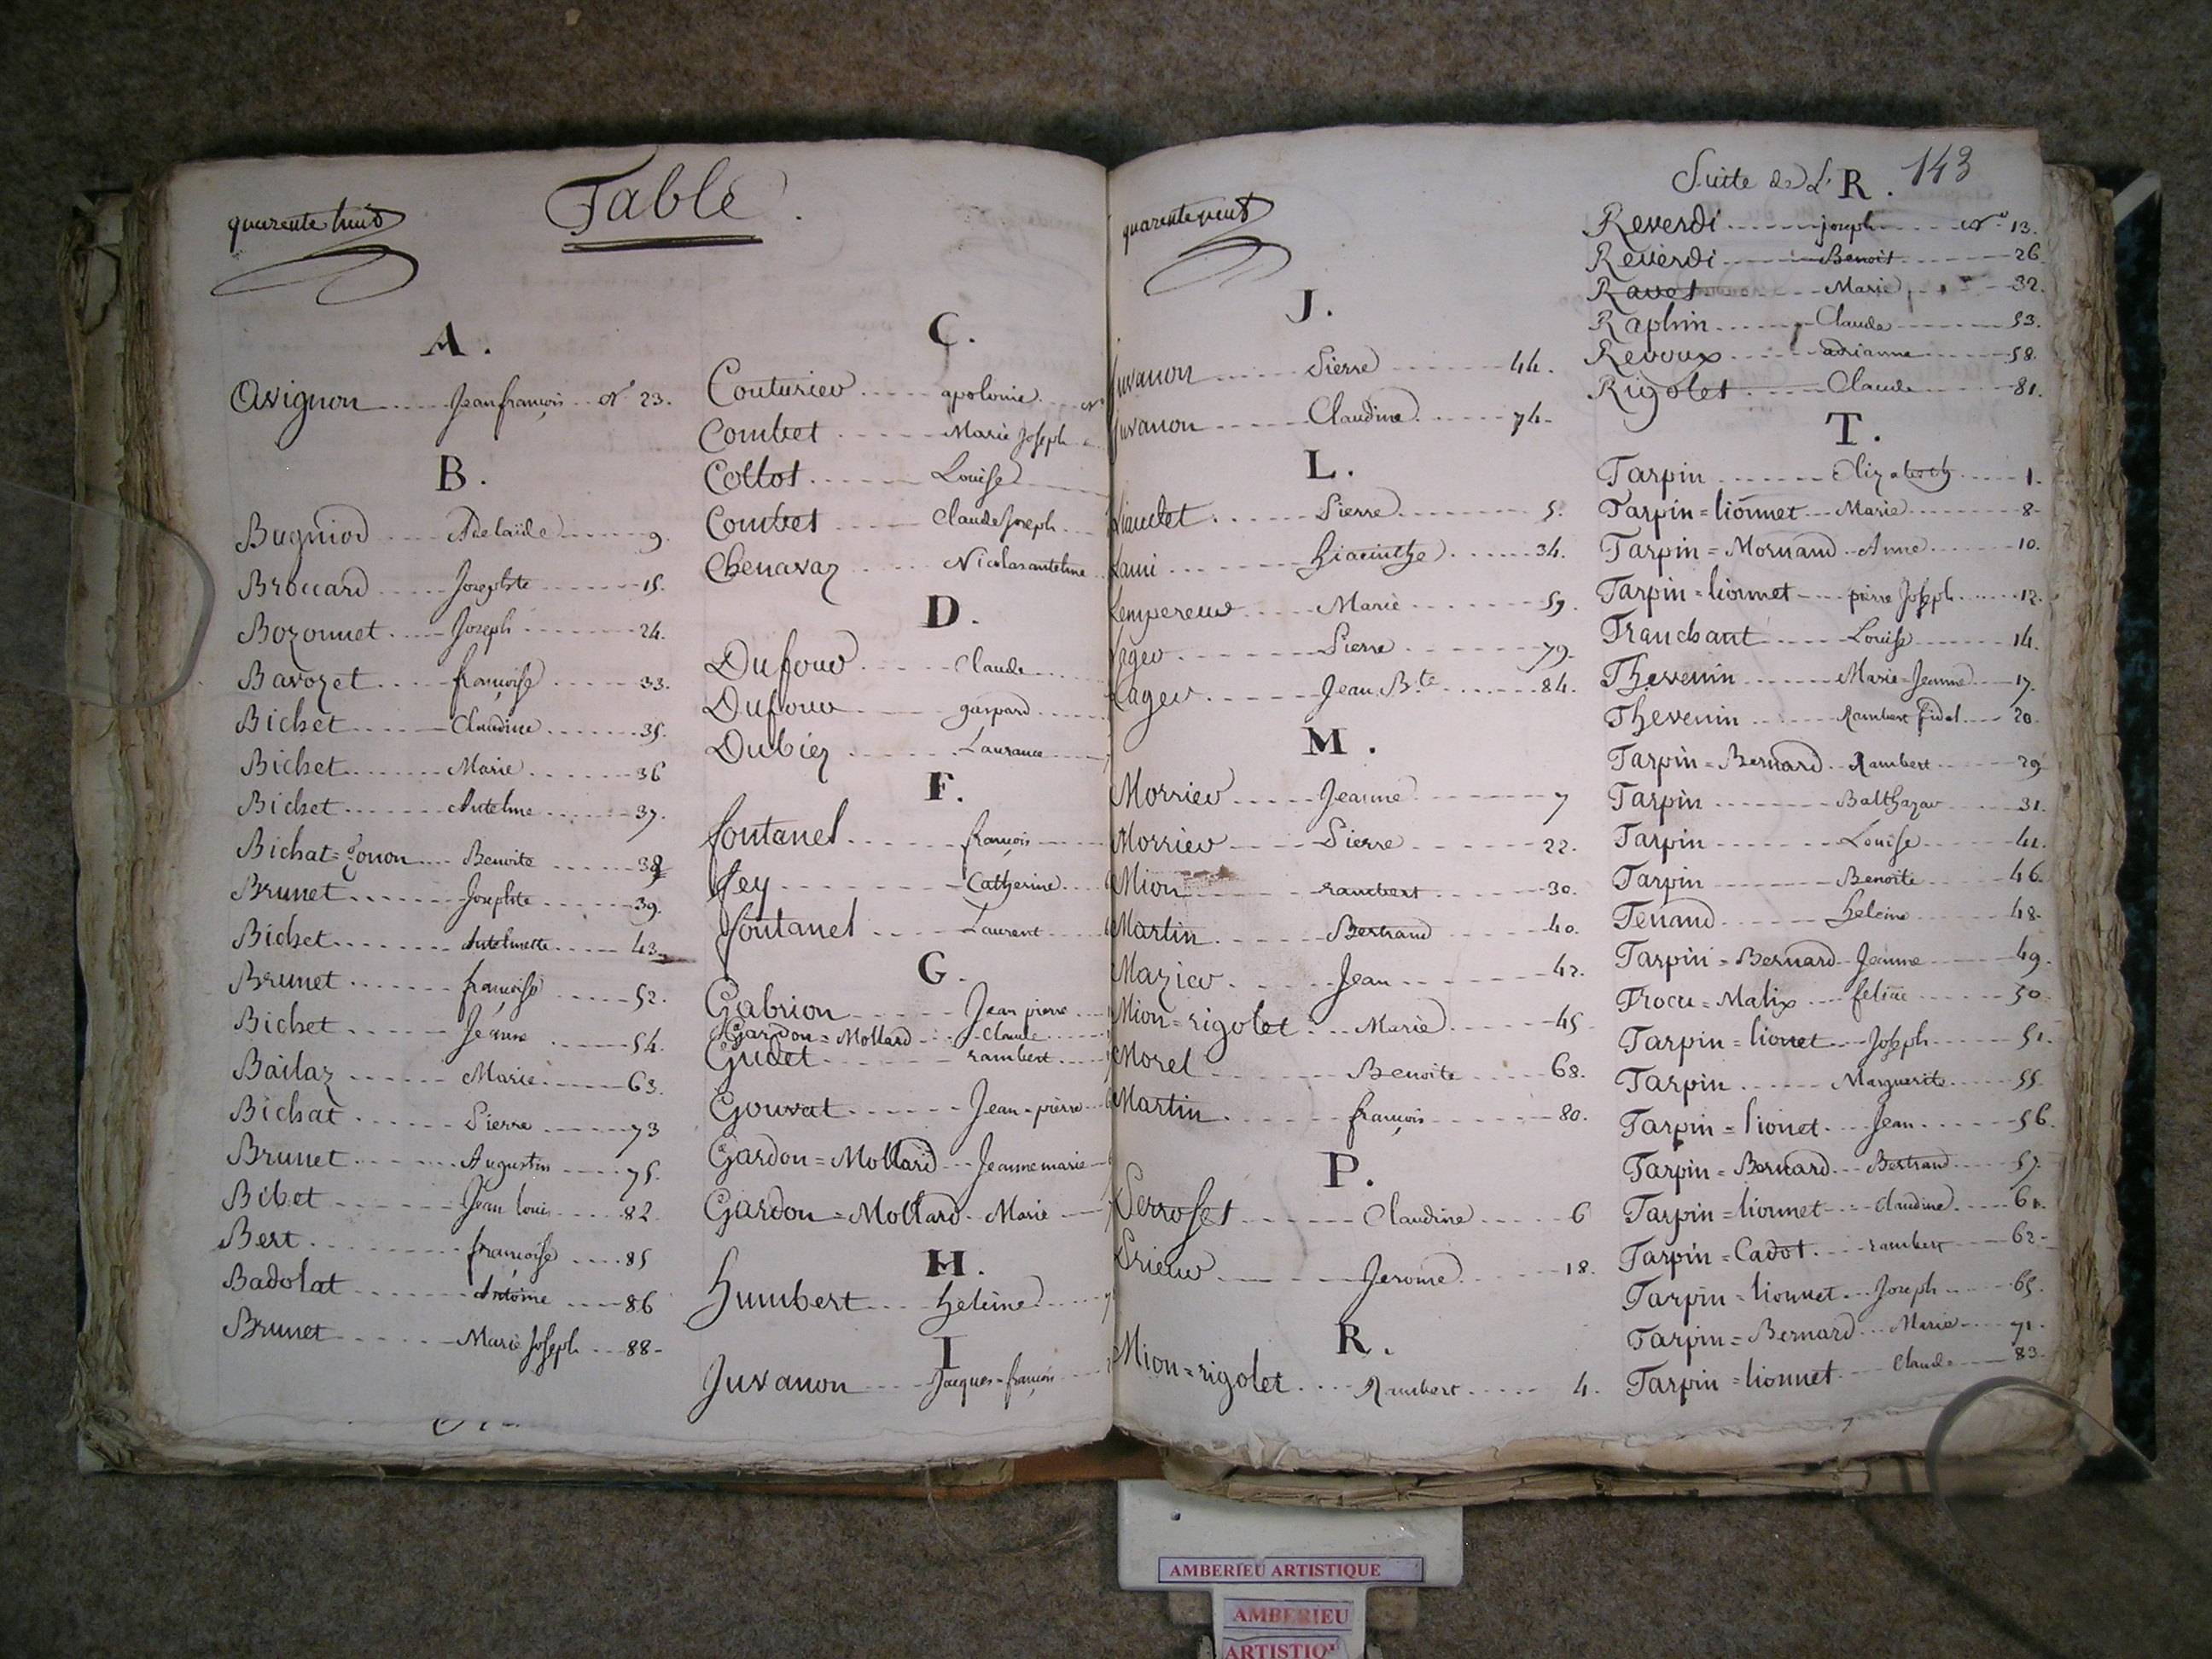 quarente huit
Table.
A.
Avignon Jean françois N° 23.
B.
Bugniod Adelaïde 9.
Broccard Josephte 15.
Bozonnet Joseph 24.
Bavozet françoise 33.
Bichet Claudine 35.
Bichet Marie 36
Bichet Antelme 37.
Bichat= Benoite 38
Brunet Josephte 39.
Bichet Antelmette 43
Brunet françoise 52.
Bichet Jeanne 54.
Bailaz Marie 63.
Bichat Pierre 73
Brunet Augustin 75.
Bibet Jean louis 82
Bert françoise 85
Badolat Antoine 86
Brunet Marie Joseph 88-
C.
Couturier apolonie N°
Combet Marie Joseph
Collot Louise
Combet Claude Joseph
Chenavaz Nicolas antelme
D.
Dufour Claude
Dufour gaspard
Dubiez Laurance
F.
fontanel françois
fey Catherine
fontanel Laurent
G.
Gabrion Jean pierre
Gardon = Mollard Claude
Gudet rambert
Gouvat Jean-pierre
Gardon = Mollard Jeanne marie
Gardon = Mollard Marie
H.
humbert heleine
I
Juvanon Jacques-françois
quarente neuf
J.
Juvanon Pierre 44.
Juvanon Claudine 74-
L.
Liaudet Pierre 5.
Lami hiacinthe 34.
Lempereur Marie 59.
Lager Pierre 79-
Lager Jean B.te 84.
M.
Morrier Jeanne 7
Morrier Pierre 22.
Mion rambert 30.
Martin Bertrand 40.
Mazier Jean 42.
Mion=rigolet Marie 45
Morel Benoite 68.
Martin françois 80.
P.
Perroset Claudine 6
Prieur Jerome 18.
R.
Mion=rigolet Rambert 4.
143
Suite de L' R.
Reverdi joseph N° 13.
Reverdi Benoit 26
Ravet Marie 32.
Raphin Claude 53.
Revoux adrianne 58.
Rigolet Claude 81.
T.
Tarpin Elizabeth 1.
Tarpin=lionnet Marie 8-
Tarpin = Mornand Anne 10.
Tarpin=lionnet pierre Joseph 12.
Tranchant Louise 14.
Thevenin Marie-Jeanne 17.
Thevenin Rambert fidel 20.
Tarpin=Bernard Rambert 29
Tarpin Balthazar 31.
Tarpin Louise 41.
Tarpin Benoite 46.
Tenand heleine 48.
Tarpin=Bernard Jeanne 49.
Trocu=Malix 50.
Tarpin=lionet Joseph 51.
Tarpin Marguerite 55
Tarpin=lionet Jean 56.
Tarpin=Bernard Bertrand 57.
Tarpin=lionnet Claudine 61.
Tarpin=Cadot rambert 62-
Tarpin=lionnet Joseph 65.
Tarpin=Bernard Marie 71.
Tarpin=lionnet Claude 83.
AMBERIEU ARTISTIQUE
AMBERIEU